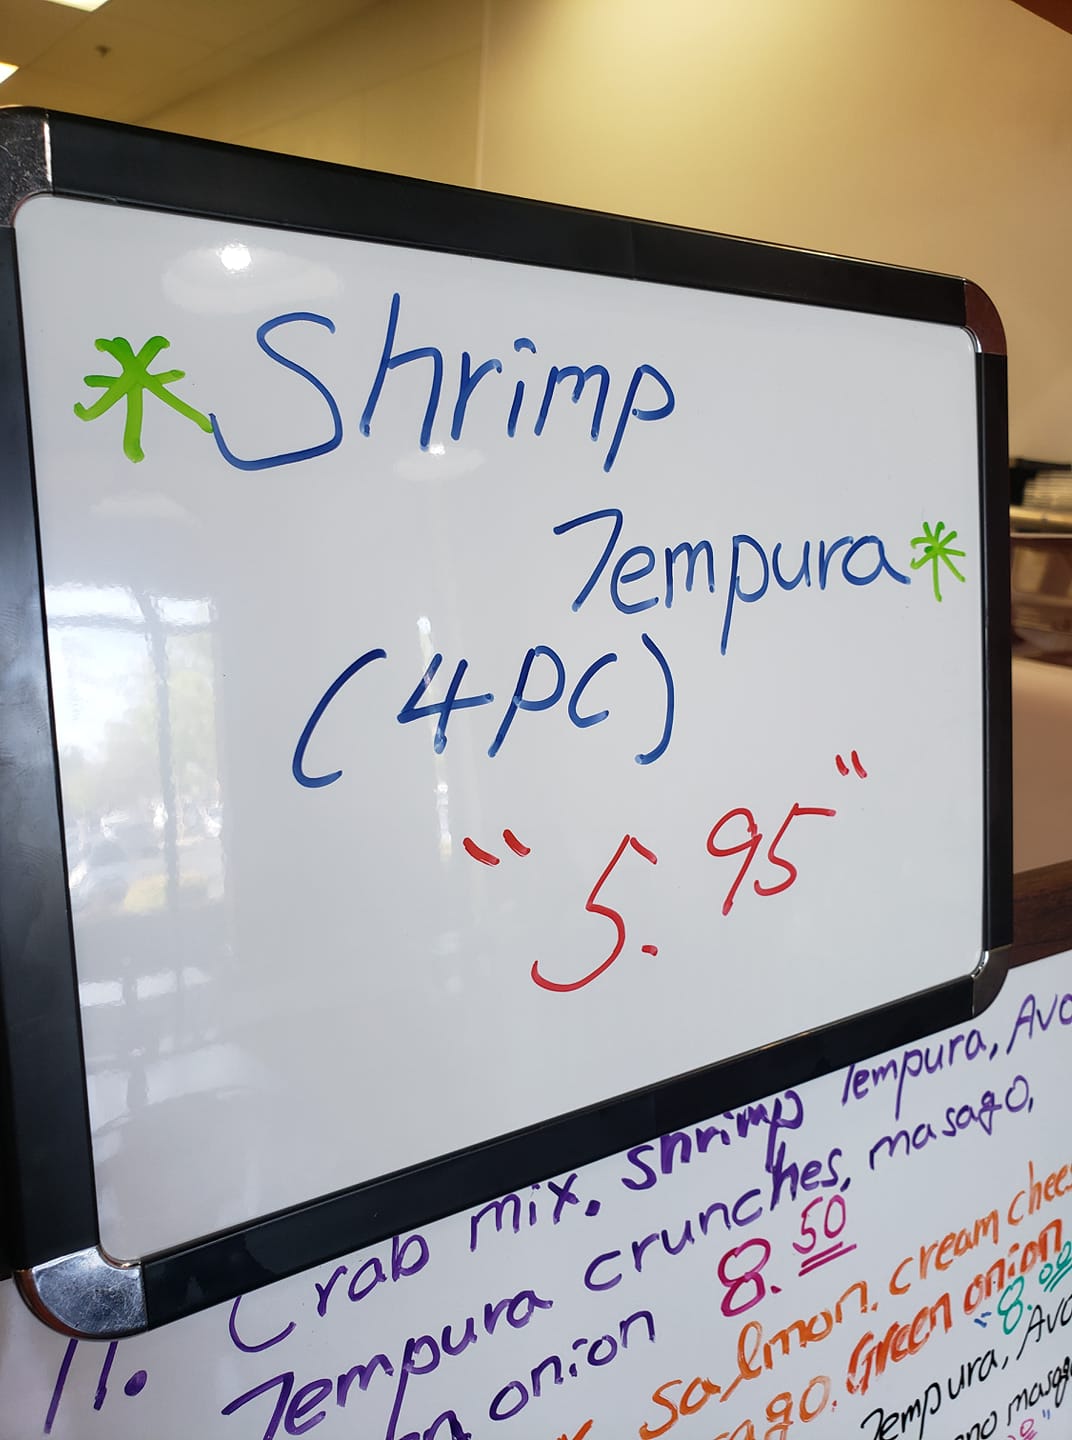 *Shrimp
Tempura*
(4PC)
"5.95"
11. Crab mix. shrimp Tempura,
Tempura crunches, masago,
onion 8.50
salmon. cream
Green onion
"8.00
Tempura,